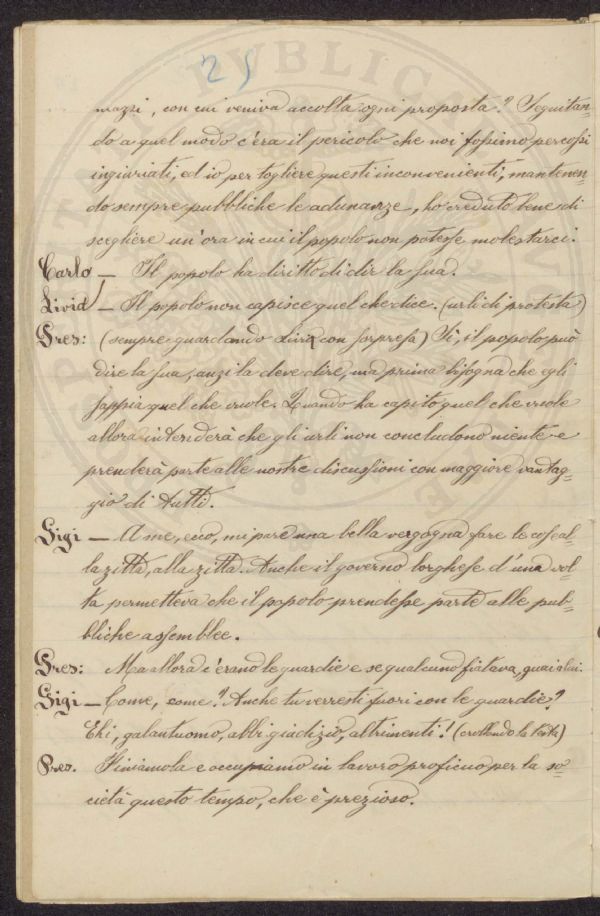 25
mazzi, con cui veniva accolta ogni proposta? Seguitan=
do a quel modo c'era il pericolo che noi fossimo percossi
ingiuriati, ed io per togliere questi inconvenienti, mantenen=
do sempre pubbliche le adunanze, ho creduto bene di
scegliere un'ora in cui il popolo non potesse molestarci.
Carlo — Il popolo ha diritto di dir la sua.
Livid — Il popolo non capisce quel che dice. (urli di protesta)
Pres: (sempre guardando Livid con sorpresa) Sì, il popolo può
dire la sua, anzi la deve dire, ma prima bisogna che egli
sappia quel che vuole. Quando ha capito quel che vuole
allora intenderà che gli urli non concludono niente e
prenderà parte alle nostre discussioni con maggiore vantag=
gio di tutti.
Gigi — A me, ecco, mi pare una bella vergogna fare le cose al=
la zitta, alla zitta. Anche il governo borghese d'una vol=
ta permetteva che il popolo prendesse parte alle pub=
bliche assemblee.
Pres: Ma allora c'erano le guardie e se qualcuno fiatava, guai a lui.
Gigi — Come, come? Anche tu verresti fuori con le guardie?
Ehi, galantuomo, abbi giudizio, altrimenti! (crollando la testa)
Pres. Finiamola e occupiamo in lavoro proficuo per la so=
cietà questo tempo, che è prezioso.